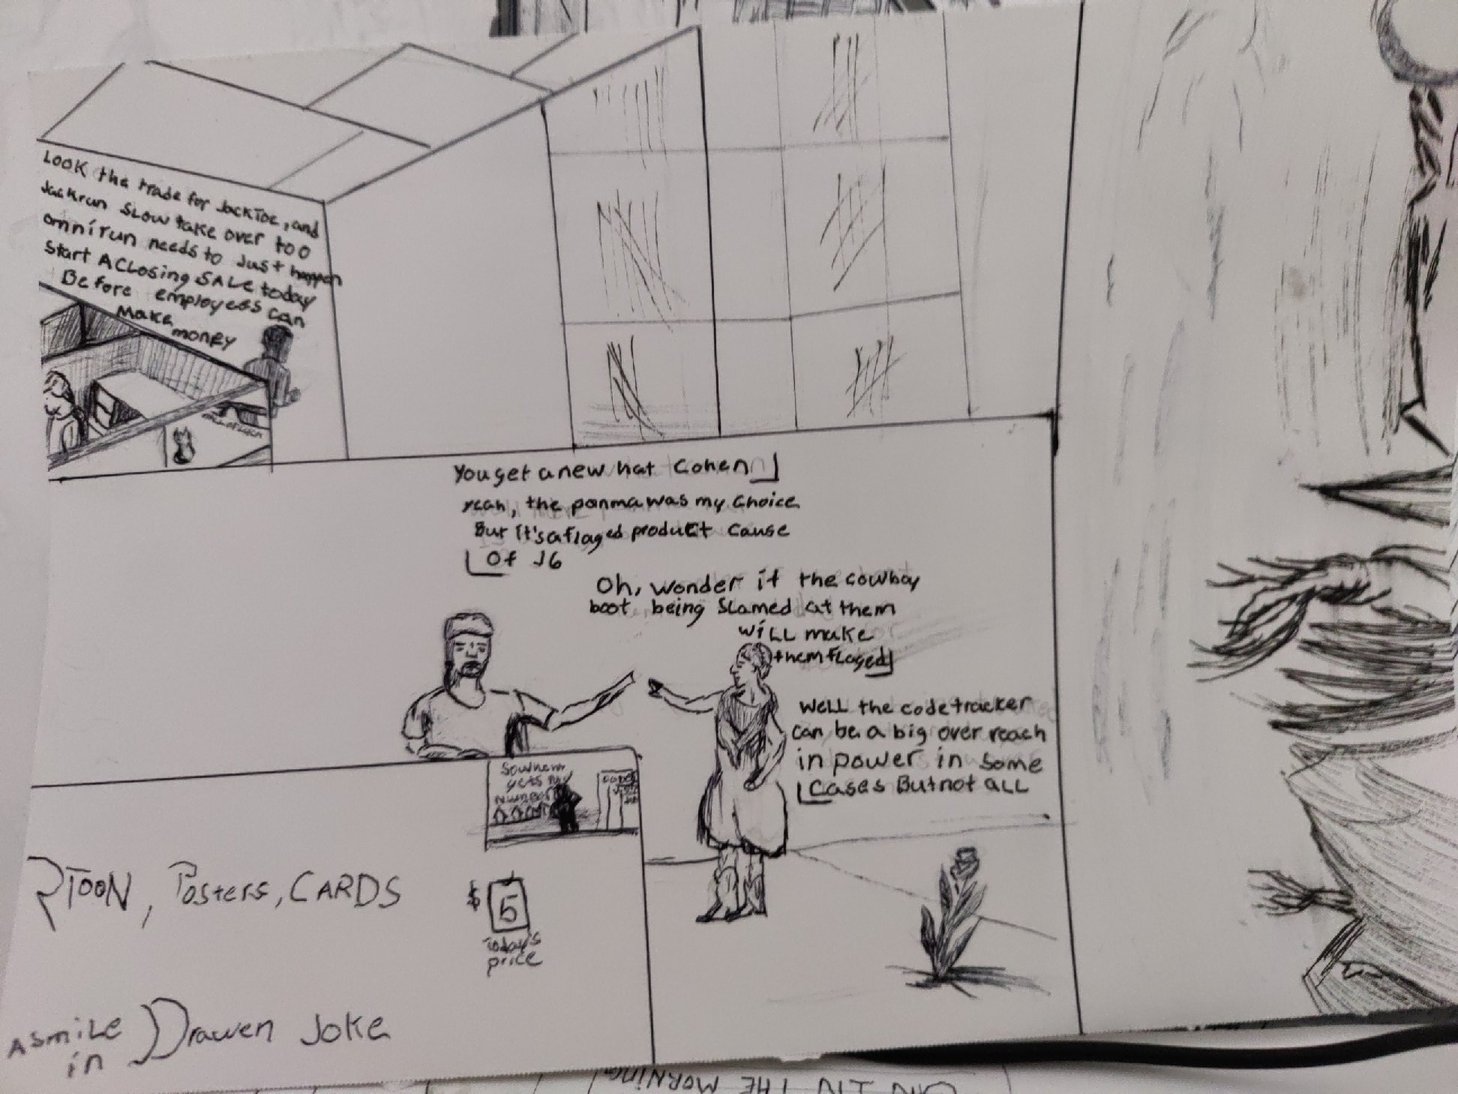 Look the trade for JackToe, and
Jackrun slow take over too
omnirun needs to Just happen
Start A Closing SALE today
Before employees can
Make money
You get a new hat Cohen
yeah, the panma was my choice
But it's a flaged product cause
Of J6
Oh, wonder if the cowboy
boot being slamed at them
will make
them flaged
Well the code tracker
can be a big over reach
in power in some
Cases But not all
Southern
yets
RTOON, Posters, CARDS
$ 5
Today's
price
A smile
in Drawen Joke
THE MORNING